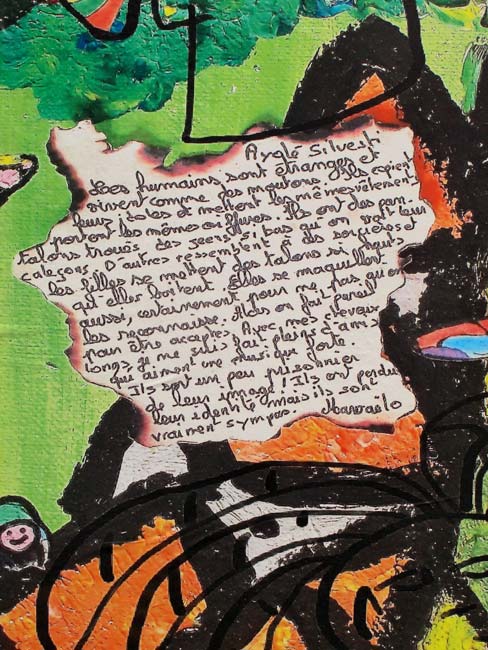 Ayglé Silvesti
Les humains sont étranges et
vivent comme des moutons. Ils copient
leurs idoles et mettent les mêmes vêtements
portent les mêmes coiffures. Ils ont des pan.
talons troués, des jeans si bas qu'on voit leur
caleçons. D'autres ressemblent à des sorcières et
les filles se mettent des talons si hauts
qu'elles boitent. Elles se maquillent
aussi, certainement pour ne pas qu'on
les reconnaisse. Alors on fait pareil
pour être accepté. Avec mes cheveux
longs je me suis fait pleins d'amis
qui aiment une musique forte.
Ils sont un peu prisonnier
de leur image! Ils ont perdus
leur identité mais ils sont
vraiment sympas.